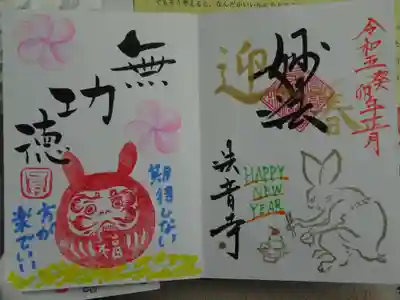 令和五癸卯年正月
迎春
妙法
HAPPY
NEW
YEAR
無功徳
期待しない
方が
楽でいい
福